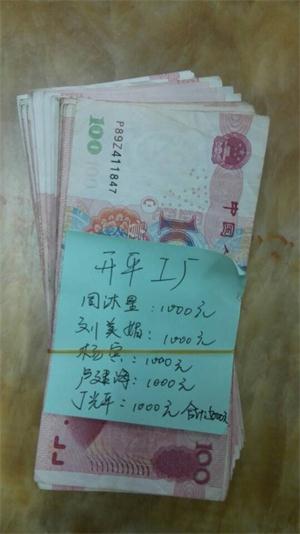 P89Z411847
100
中国人
开平工厂
周沐星：1000元
刘美媚：1000元
杨宾：1000元
卢建海：1000元
丁光平：1000元 合计5000元
100